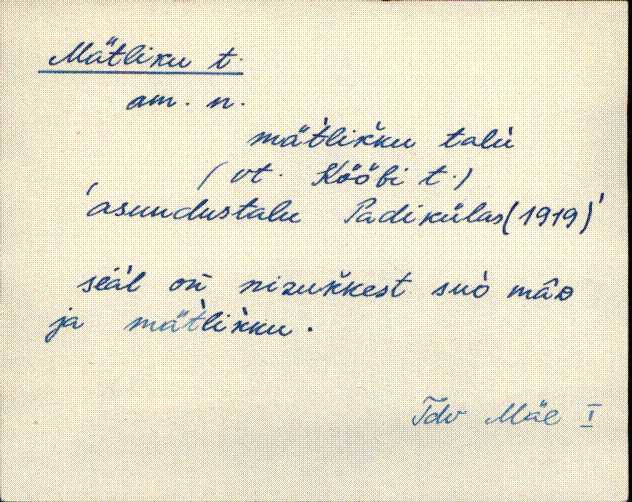 Mätliku t.
am. n.
mät̀lik̀ku talù
(vt. Kööbi t.)
'asundustalu Padikülas (1919)'
seäl on̄ nizuk̆kest suò mâa
ja mät̀lik̀ku.
Tdv Mäe I